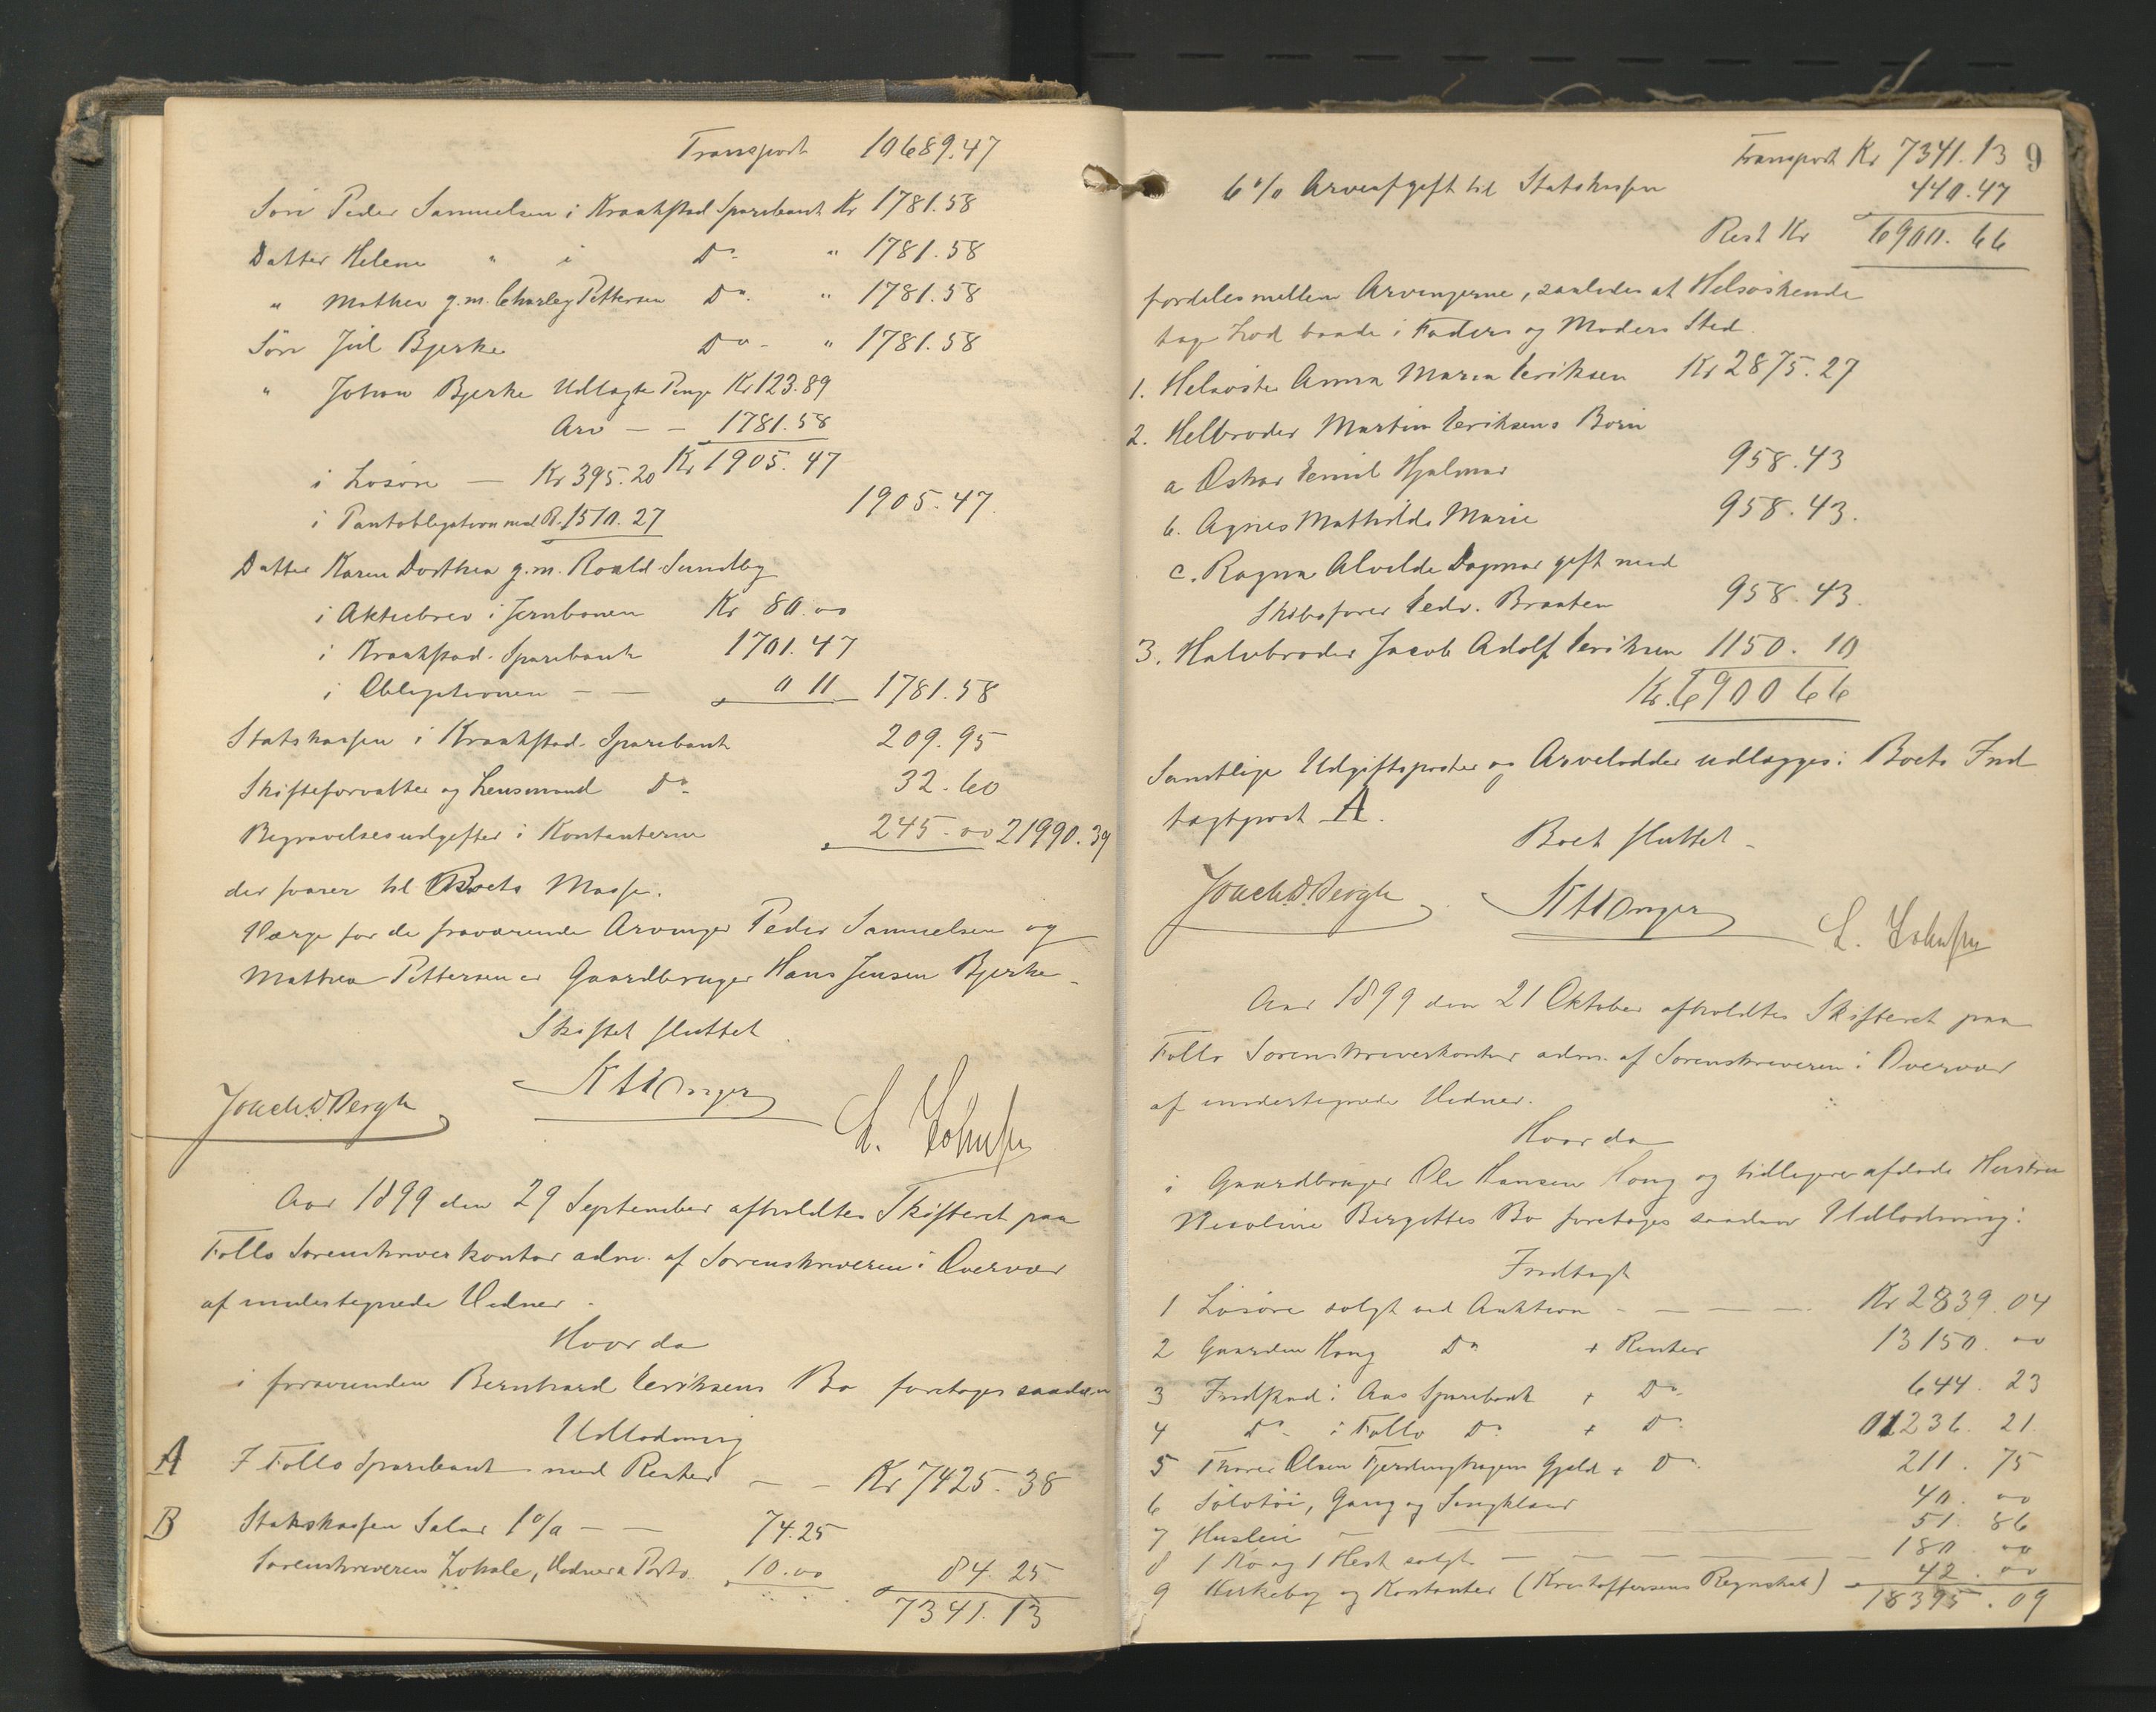 Transport 10689.47
Søn Peder Samuelsen i Kraakstad Sparebank Kr 1781.58
Datter Helene " i Do " 1781.58
" Mathea g.m. Charley Pettersen Do. " 1781.58
Søn Jul Bjerke Do - " 1781.58
" Johan Bjerke Udlagte Penge Kr 123.89
Arv - - 1781.58
Kr 1905.47
i Løsøre - Kr 395.20
i Pantobligation med R. 1510.27 1905.47
Datter Karen Dorthea g.m. Roald Sundby
i Aktiebrev i Jernbanen Kr 80.00
i Kraakstad Sparebank 1701.47
i Obligationen - - 0 11 1781.58
Statskassen i Kraakstad Sparebank 209.95
Skifteforvalter og Lensmand Do 32.60
Begravelsesudgifter i Kontanterne 245.00 21990.39
der svarer til Boets Masse.
Værge for de fraværende Arvinger Peder Samuelsen og
Mathea Pettersen er Gaardbruger Hans Jensen Bjerke -
Skiftet sluttet
Joach. D. Bergh
L. Johnsen
Aar 1899 den 29 September afholdtes Skifteret paa
Follo Sorenskriverkontor adm. af Sorenskriveren i Overvær
af undertegnede Vidner.
Hvorda
i forsvunden Bernhard Eriksens Bo foretoges saadan
Udlodning
A I Follo Sparebank med Renter - - Kr 7425.38
B Statskassen Salær 1 o/o - - 74.25
Sorenskriveren Lokale, Vidner a Porto 10.00 84.25
7341.13
9
Transport Kr 7341.13
6 o/o Arveafgift til Statskassen 440.47
Rest Kr 6900.66
fordeles mellem Arvingerne, saaledes at Helsøskende
tage Lod baade i Faders og Moders Sted.
1. Helsøster Anna Maria Eriksen Kr 2875.27
2. Helbroder Martin Eriksens Børn
a Oskar Emil Hjalmar 958.43
b. Agnes Mathilde Marie 958.43.
c. Ragna Alvilde Dagmar gift med
Skibsfører Edv. Braaten 958.43.
3. Halvbroder Jacob Adolf Eriksen 1150.10
Kr. 6900 66
Samtlige Udgiftsposter og Arvelodder udlægges i Boets Ind
tægtspost A.
Boet sluttet -
Joach. D. Bergh
L. Johnsen
Aar 1899 den 21 Oktober afholdtes Skifteret paa
Follo Sorenskriverkontor adm. af Sorenskriveren i Overvær
af undertegnede Vidner.
Hvorda
i Gaardbruger Ole Hansen Haug og tidligere afdøde Hustru
Nicoline Birgittes Bo foretoges saadan Udlodning:
Indtægt
1 Løsøre solgt ved Auktion - - - - Kr 2839.04
2 Gaarden Haug Do + Renter 13150.00
3 Indskud i Aas Sparebank + Do 644.23
4 Do - i Follo Do + Do 1236.21.
5 Thorer Olsen Fjerdinghagens Gjeld + Do 211.75
6 Sølvtøi, Gang og Sengklæder 40.00
7 Husleie - 51.86
8 1 Ko og 1 Hest solgt - - - 180.00
9 Kirkebog og Kontanter (Kristoffersens Regnskab) 42.00
18395.09